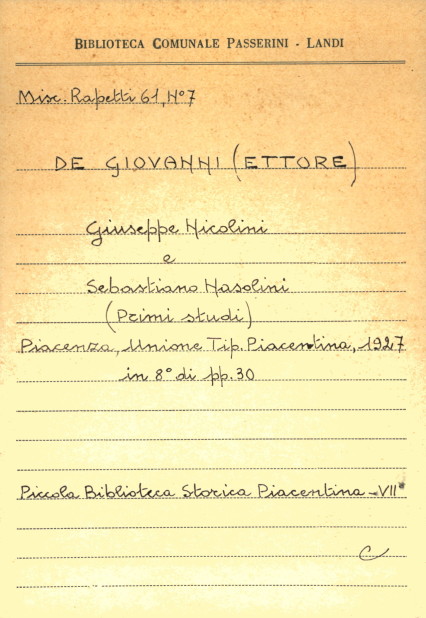 BIBLIOTECA COMUNALE PASSERINI - LANDI
Misc. Rapetti 61, N° 7
DE GIOVANNI (ETTORE)
Giuseppe Nicolini
e
Sebastiano Nasolini
(Primi studi)
Piacenza, Unione Tip. Piacentina, 1927
in 8° di pp. 30
Piccola Biblioteca Storica Piacentina - VII°
C